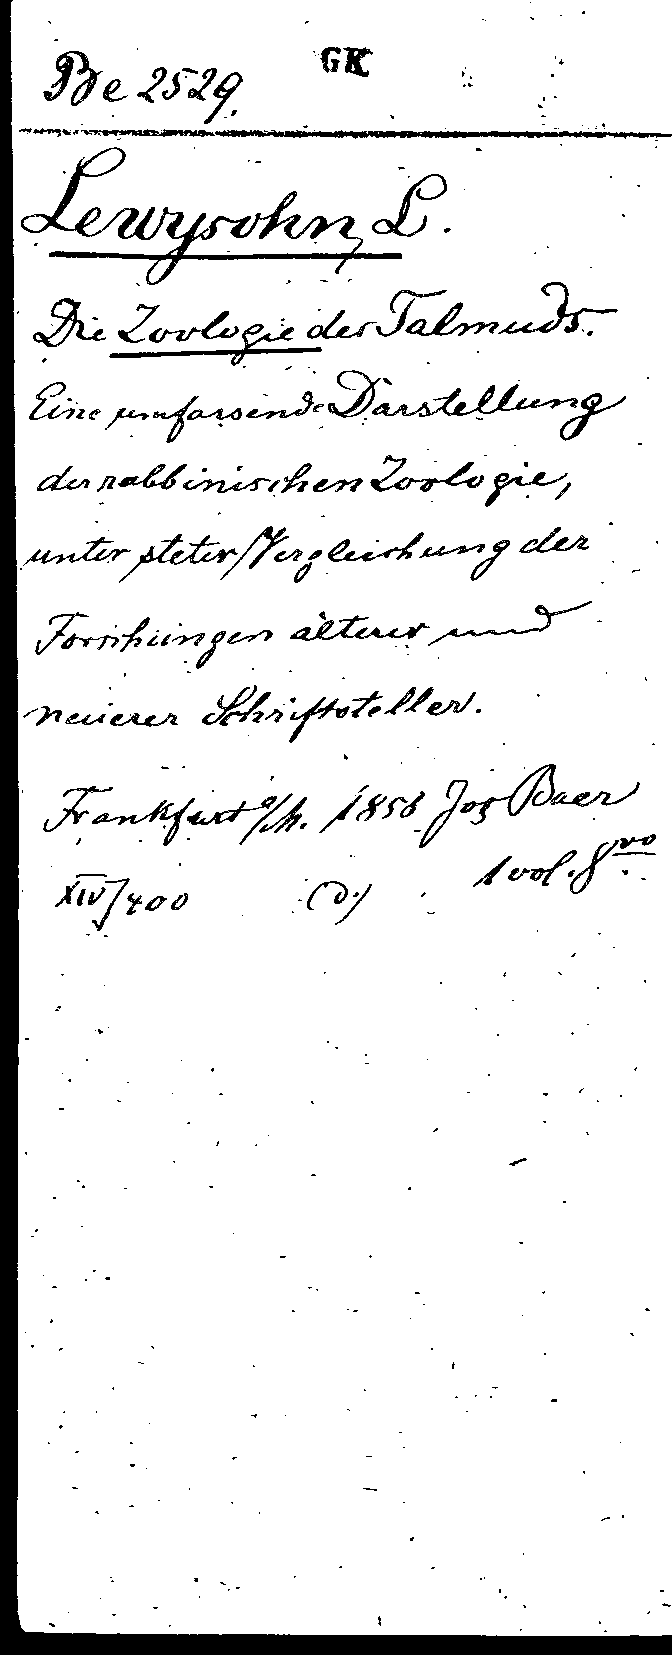 Be 2529.
GK
Lewysohn, L.
Die Zoologie des Talmuds.
Eine umfassende Darstellung
der rabbinischen Zoologie,
unter steter Vergleichung der
Forschungen älterer und
neuerer Schriftsteller.
Frankfurt a/M. 1858 Jos Baer
XIV/400 (d.) 1 vol. 8vo.